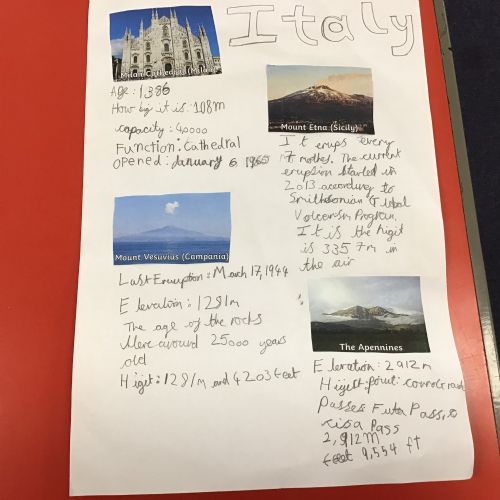 Italy
Milan Cathedral (Milan)
Age: 1386
How big it is: 108m
capacity: 40000
Function: Cathedral
opened: January 6 1965
Mount Etna (Sicily)
It erups every
7 mothes. The current
eruption started in
2013 according to
Smithsonian Global
Volcanism Program.
It is the higit
is 3357m in
the air
Mount Vesuvius (Campania)
Last Erruption: March 17, 1944
Elevation: 1281m
The age of the rocks
Mere around 25000 years
old
Higit: 1281m and 4203 feet
The Apennines
Elevation: 2912m
Higest point: corno Grande
Passes Futa Pass,
cisa Pass
2,912m
feet 9,554 ft